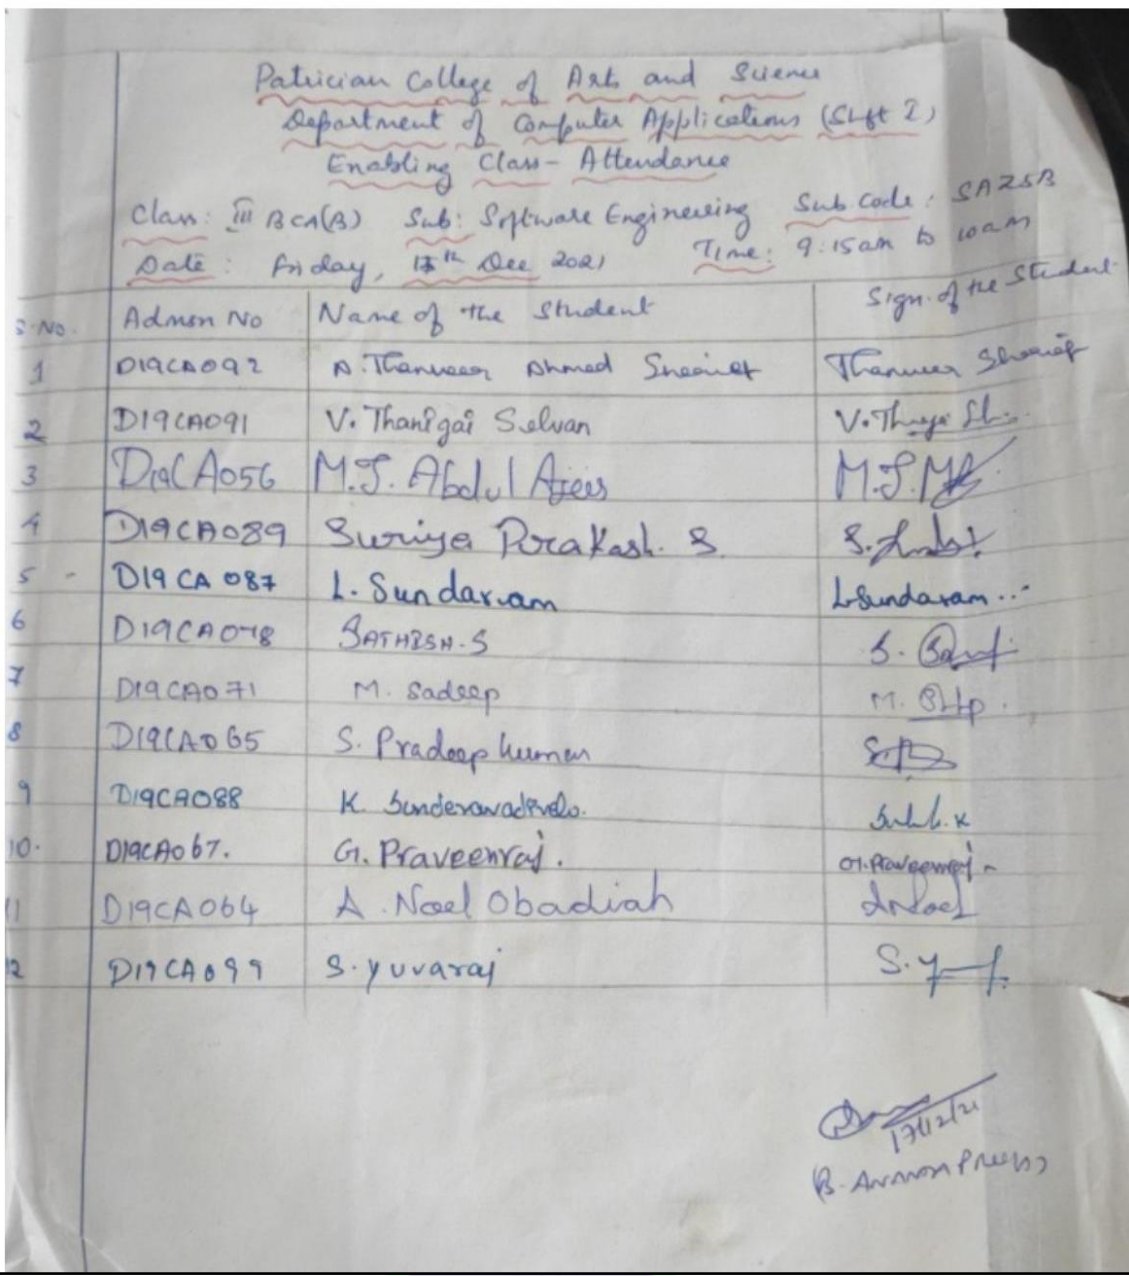 Patrician College of Arts and Science
Department of Computer Applications (Shift I)
Enabling Class - Attendance
Class: III BCA(B) Sub: Software Engineering Sub Code: SAZ5B
Date: Friday, 17th Dec 2021 Time: 9:15am to 10am
S.No. Admsn No Name of the Student Sign. of the Student
1 D19CA092 A. Thanveer Ahmed Sheerief Thanveer Sheerief
2 D19CA091 V. Thanigai Selvan V. Thanigai
3 D19CA056 M.J. Abdul Ajees M.J.
4 D19CA089 Suriya Prakash. S S.
5 - D19CA087 L. Sundaram L. Sundaram...
6 D19CA078 SATHISH. S S.
7 D19CA071 M. Sadeep M.
8 D19CA065 S. Pradeep kumar
9 D19CA088 K K
10. D19CA067. G. Praveenraj. G. Praveenraj
11 D19CA064 A. Noel Obadiah A Noel
12 D19CA099 S. yuvaraj S. y
17/12/21
(B.